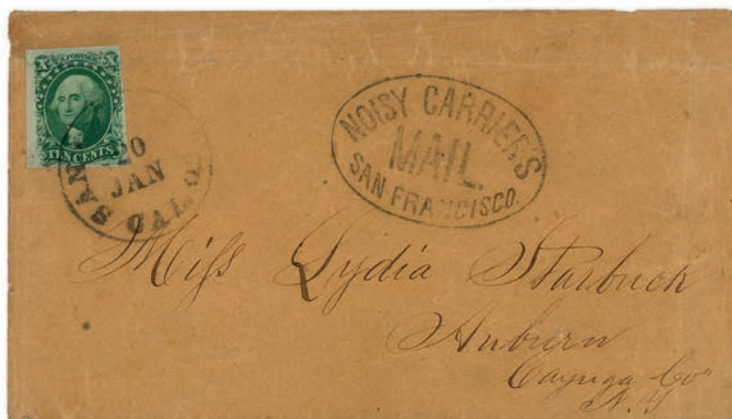 U.S. POSTAGE
TEN CENTS
SAN
20
JAN
CAL
NOISY CARRIER'S
MAIL
SAN FRANCISCO.
Miss Lydia Starbuck
Auburn
Cayuga Co
N.Y